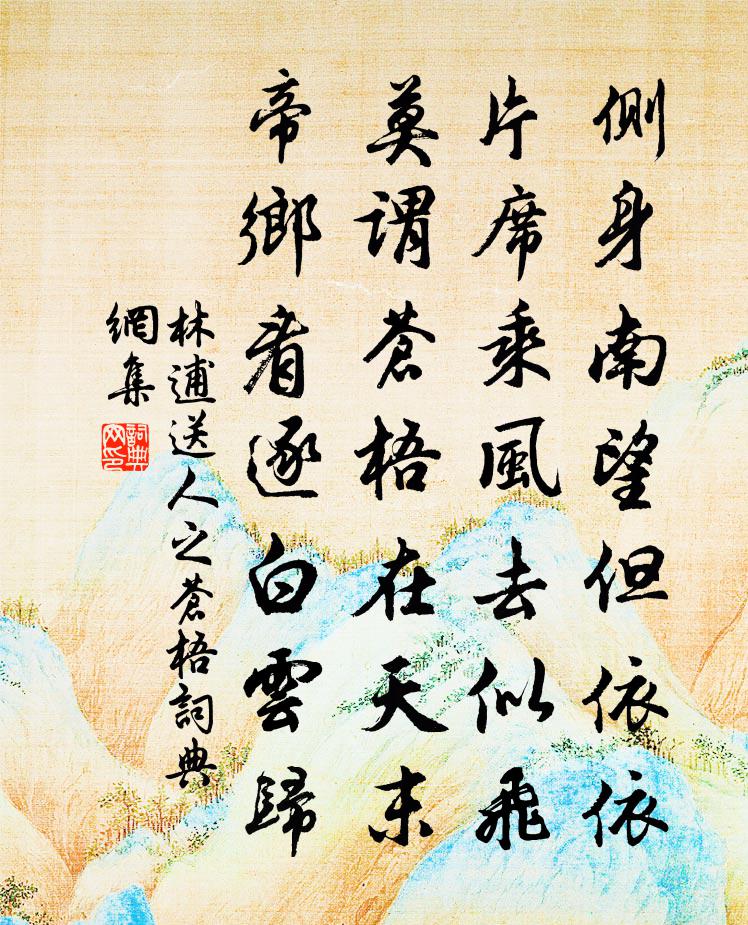 側身南望但依依
片席乘風去似飛
莫謂蒼梧在天末
帝鄉看逐白雲歸
林逋送人之蒼梧詞典
網集
詞典
网印